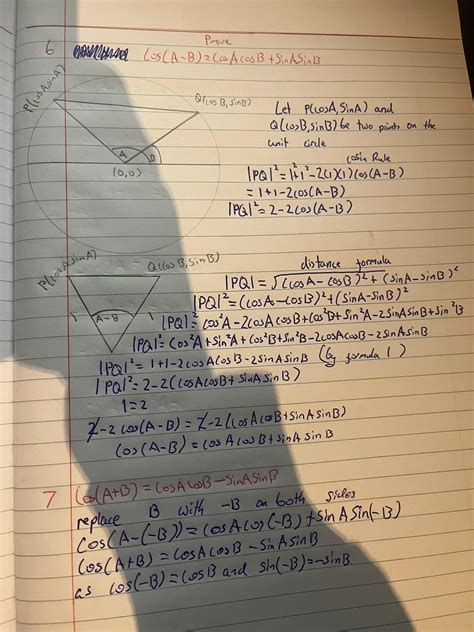 Prove
6 Cos(A-B) = CosAcosB + SinASinB
P(cosA, sinA)
Q(cosB, sinB)
A B
(0,0)
Let P(cosA, SinA) and
Q(cosB, SinB) be two points on the
unit circle
Cosin Rule
|PQ|² = 1² + 1² - 2(1)(1)(cos(A-B)
= 1 + 1 - 2cos(A-B)
|PQ|² = 2 - 2cos(A-B)
P(cosA, sinA)
Q(cosB, SinB)
1 A-B 1
distance formula
|PQ| = √(CosA - CosB)² + (SinA - sinB)²
|PQ|² = (cosA - cosB)² + (SinA - SinB)²
|PQ|² = cos²A - 2CosACosB + Cos²B + Sin²A - 2SinASinB + Sin²B
|PQ|² = Cos²A + Sin²A + Cos²B + Sin²B - 2CosACosB - 2SinASinB
|PQ|² = 1 + 1 - 2CosACosB - 2SinASinB (by formula 1)
|PQ|² = 2 - 2(CosACosB + SinASinB)
1 = 2
2 - 2cos(A-B) = 2 - 2(CosACosB + SinASinB)
Cos(A-B) = CosACosB + SinASinB
7 Cos(A+B) = CosACosB - SinASinB
replace B with -B on both sides
Cos(A-(-B)) = CosACos(-B) + SinASin(-B)
Cos(A+B) = CosACosB - SinASinB
as Cos(-B) = CosB and sin(-B) = -sinB.